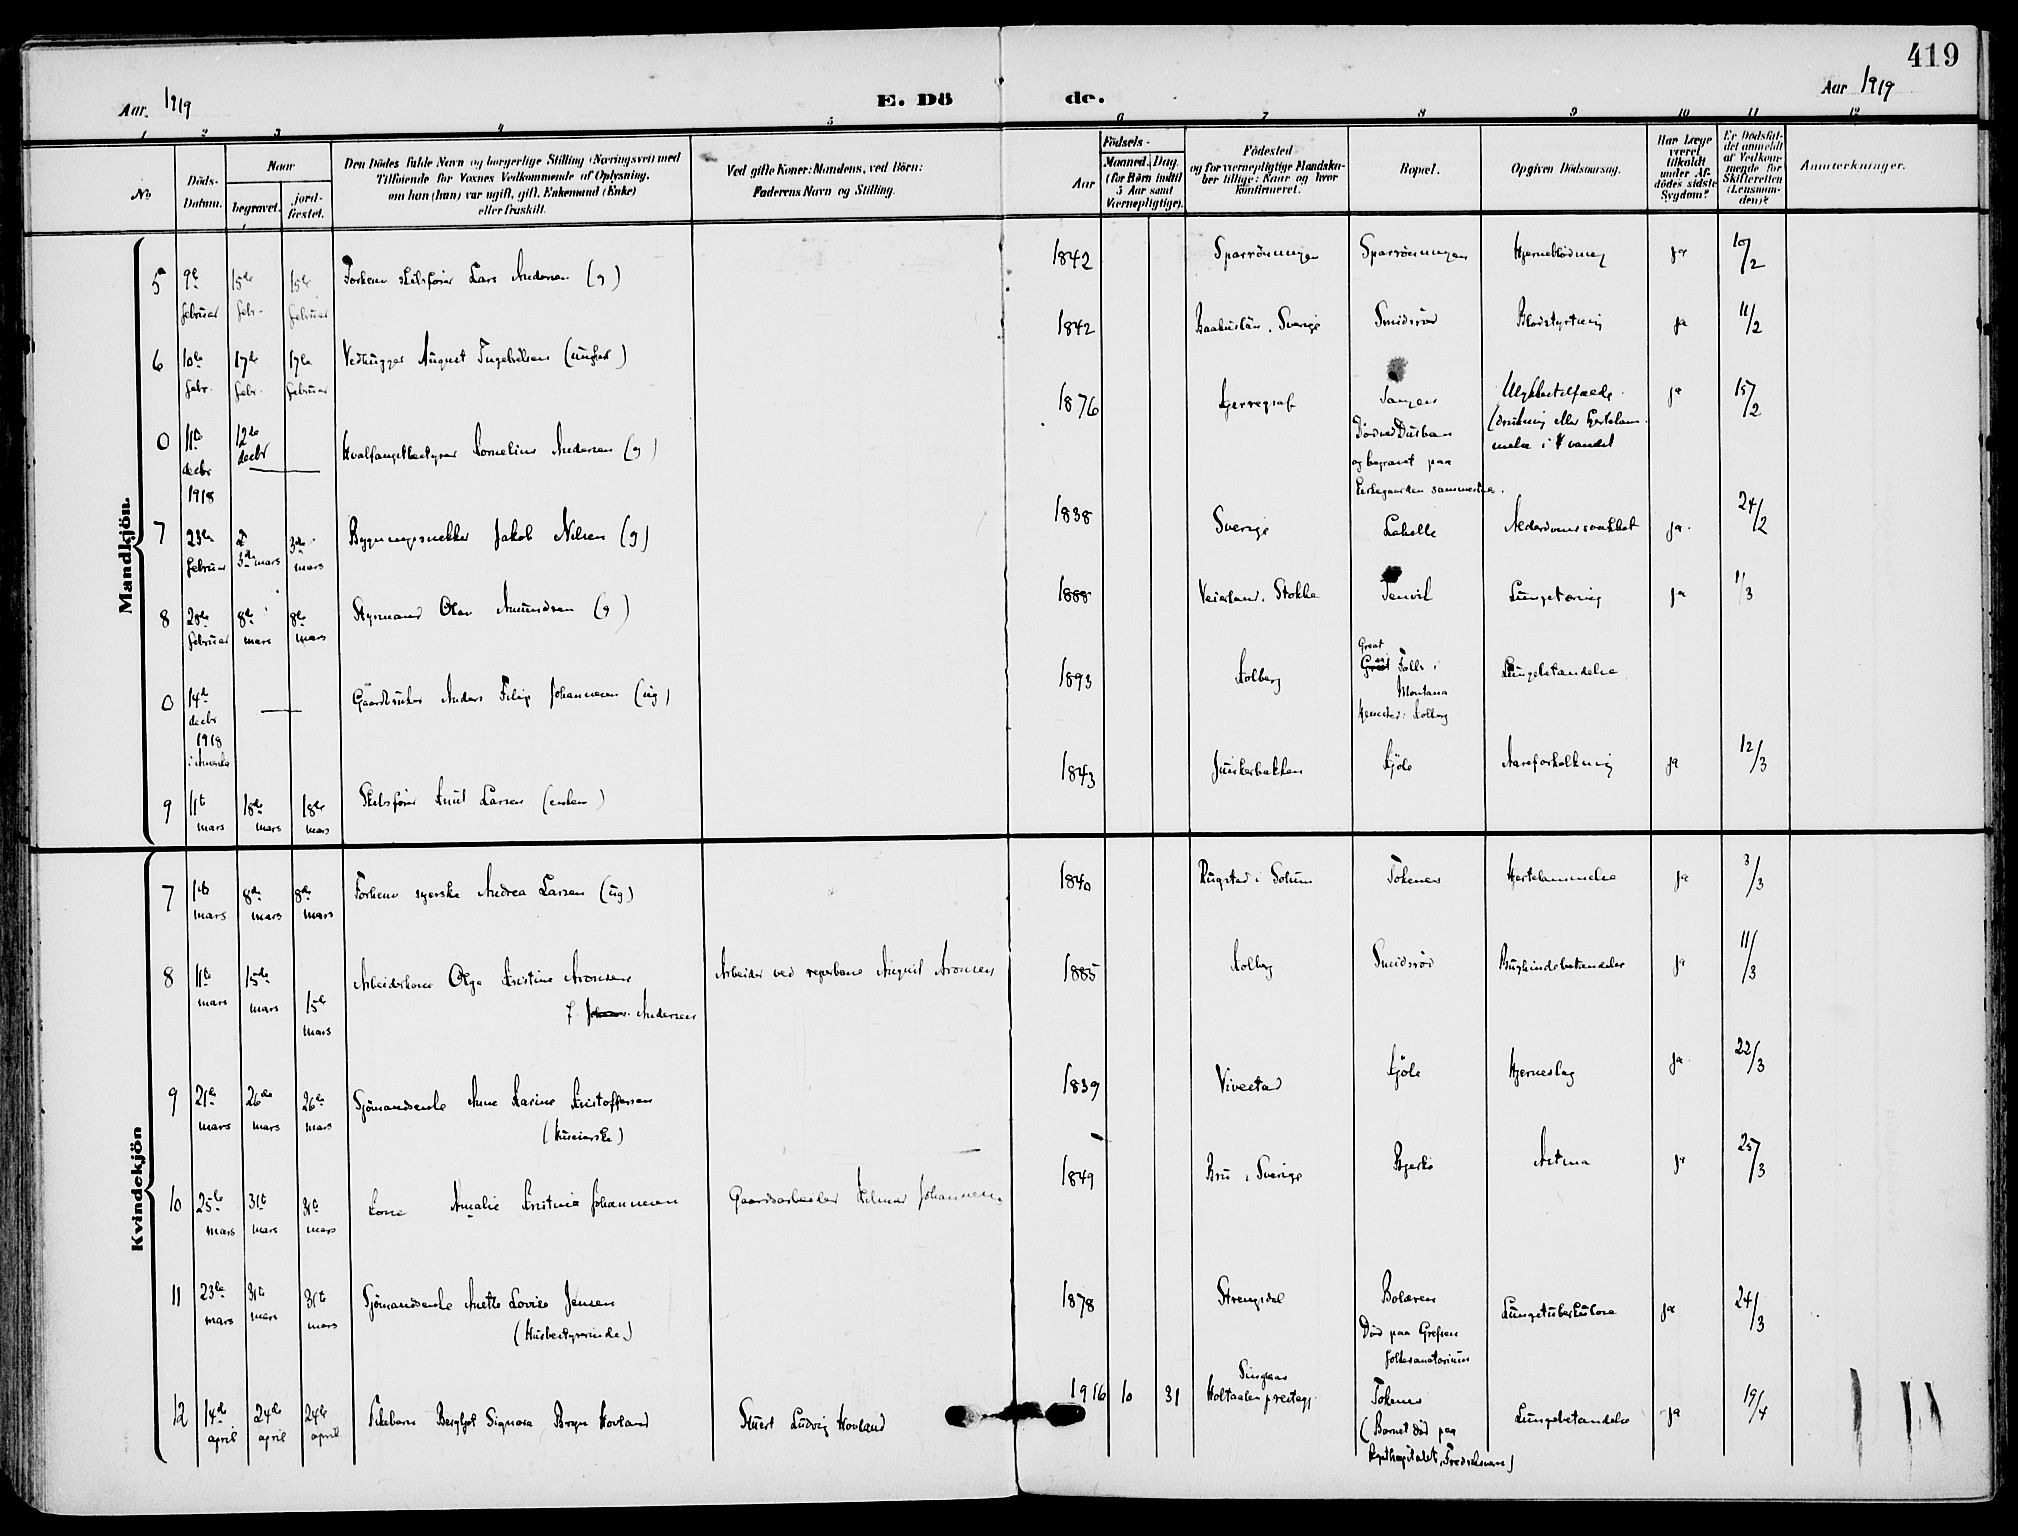 419
Aar 1919
E. Dö de.
Aar 1919
1 2 3 4 5 6 7 8 9 10 11 12
No.
Döds-Datum.
Naar
begravet.
jord-fæstet.
Den Dödes fulde Navn og borgerlige Stilling (Næringsvei) med
Tilföiende for Voxnes Vedkommende af Oplysning,
om hun (han) var ugift, gift, Enkemand (Enke)
eller fraskilt.
Ved gifte Koner: Mandens, ved Börn:
Faderens Navn og Stilling.
Födsels-
Aar
Maaned. Dag.
(for Börn indtil
5 Aar samt
Værnepligtige).
Födested
og for værnepligtige Mandska-
ber tillige: Naar og hvor
konfirmeret.
Bopæl.
Opgiven Dödsaarsag.
Har Læge
været
tilkaldt
under Af-
dödes sidste
Sygdom?
Er Dödsfal-
det anmeldt
af Vedkom-
mende for
Skifteretten
(Lensman-
den)?
Anmerkninger.
Mandkjön.
5 9de februar 15de febr. 15de februar Forhenv. skibsfører Lars Andersen (g) 1842 Hjerneblødning ja 10/2
6 10de febr. 17de febr. 17de februar Vedhugger August (ungkar) 1842 Baahuslän, Sverige Smidsrød Blodstyrtning ja 11/2
0 11te decbr 1918 12te decbr — Hvalfangstbestyrer Kornelius Andersen (g) 1876 Tangen
Død ved Durban
og begravet paa
kirkegaarden sammesteds.
Ulykkestilfælde
(drukning eller hjertelam-
melse i vandet ja 15/2
7 23de februar 3die mars 3die mars Bygningssnekker Jakob Nilsen (g) 1838 Sverige Lahelle Alderdomssvakhet ja 24/2
8 28de februar 8de mars 8de mars Styrmand Olav Amundsen (g) 1888 Veierland, Stokke Tenvik Lungetæring ja 1/3
0 14de decbr 1918 i Amerika — Gaardbruker Anders Filip Johannesen (ug) 1893 Kolberg Great
Falls i
Montana
Hjemsted: Kolberg
Lungebetændelse
9 11te mars 18de mars 18de mars Skibsfører Knut Larsen (enkem) 1843 Junkerbakken Kjøle Aareforkalkning ja 12/3
Kvindekjön
7 1ste mars 8de mars 8de mars Forhenv. syerske Andrea Larsen (ug) 1840 Rugstad i Solum Tokenes Hjertelammelse ja 3/3
8 11te mars 15de mars 15de mars Arbeiderkone Olga Kristine Aronsen
f. Andersen
Arbeider ved reperbane August Aronsen 1885 Kolberg Smidsrød Bughindebetændelse ja 11/3
9 21de mars 26de mars 26de mars Sjømandsenke Anne Karine Kristoffersen
(Huseierske) 1839 Vivestad Kjøle Hjerneslag ja 22/3
10 25de mars 31te mars 31te mars Kone Amalie Kristine Johannesen Gaardsarbeider Hilmar Johannesen 1849 Bru i Sverige Bjerkø Astma ja 25/3
11 23de mars 31te mars 31te mars Sjømandsenke Anette Lovise Jensen
(Husbestyrerinde) 1878 Strengsdal Bolæren
Død paa Grefsen
folkesanatorium
Lungetuberkulose ja 24/3
12 14de april 24de april 24de april Pikebarn Bergljot Signora Bryn Hovland Stuert Ludvig Hovland 1916 10 31 Singsaas
Holtaalen prestegj. Tokenes
(Barnet død paa
Fredriksværn)
Lungebetændelse ja 19/4